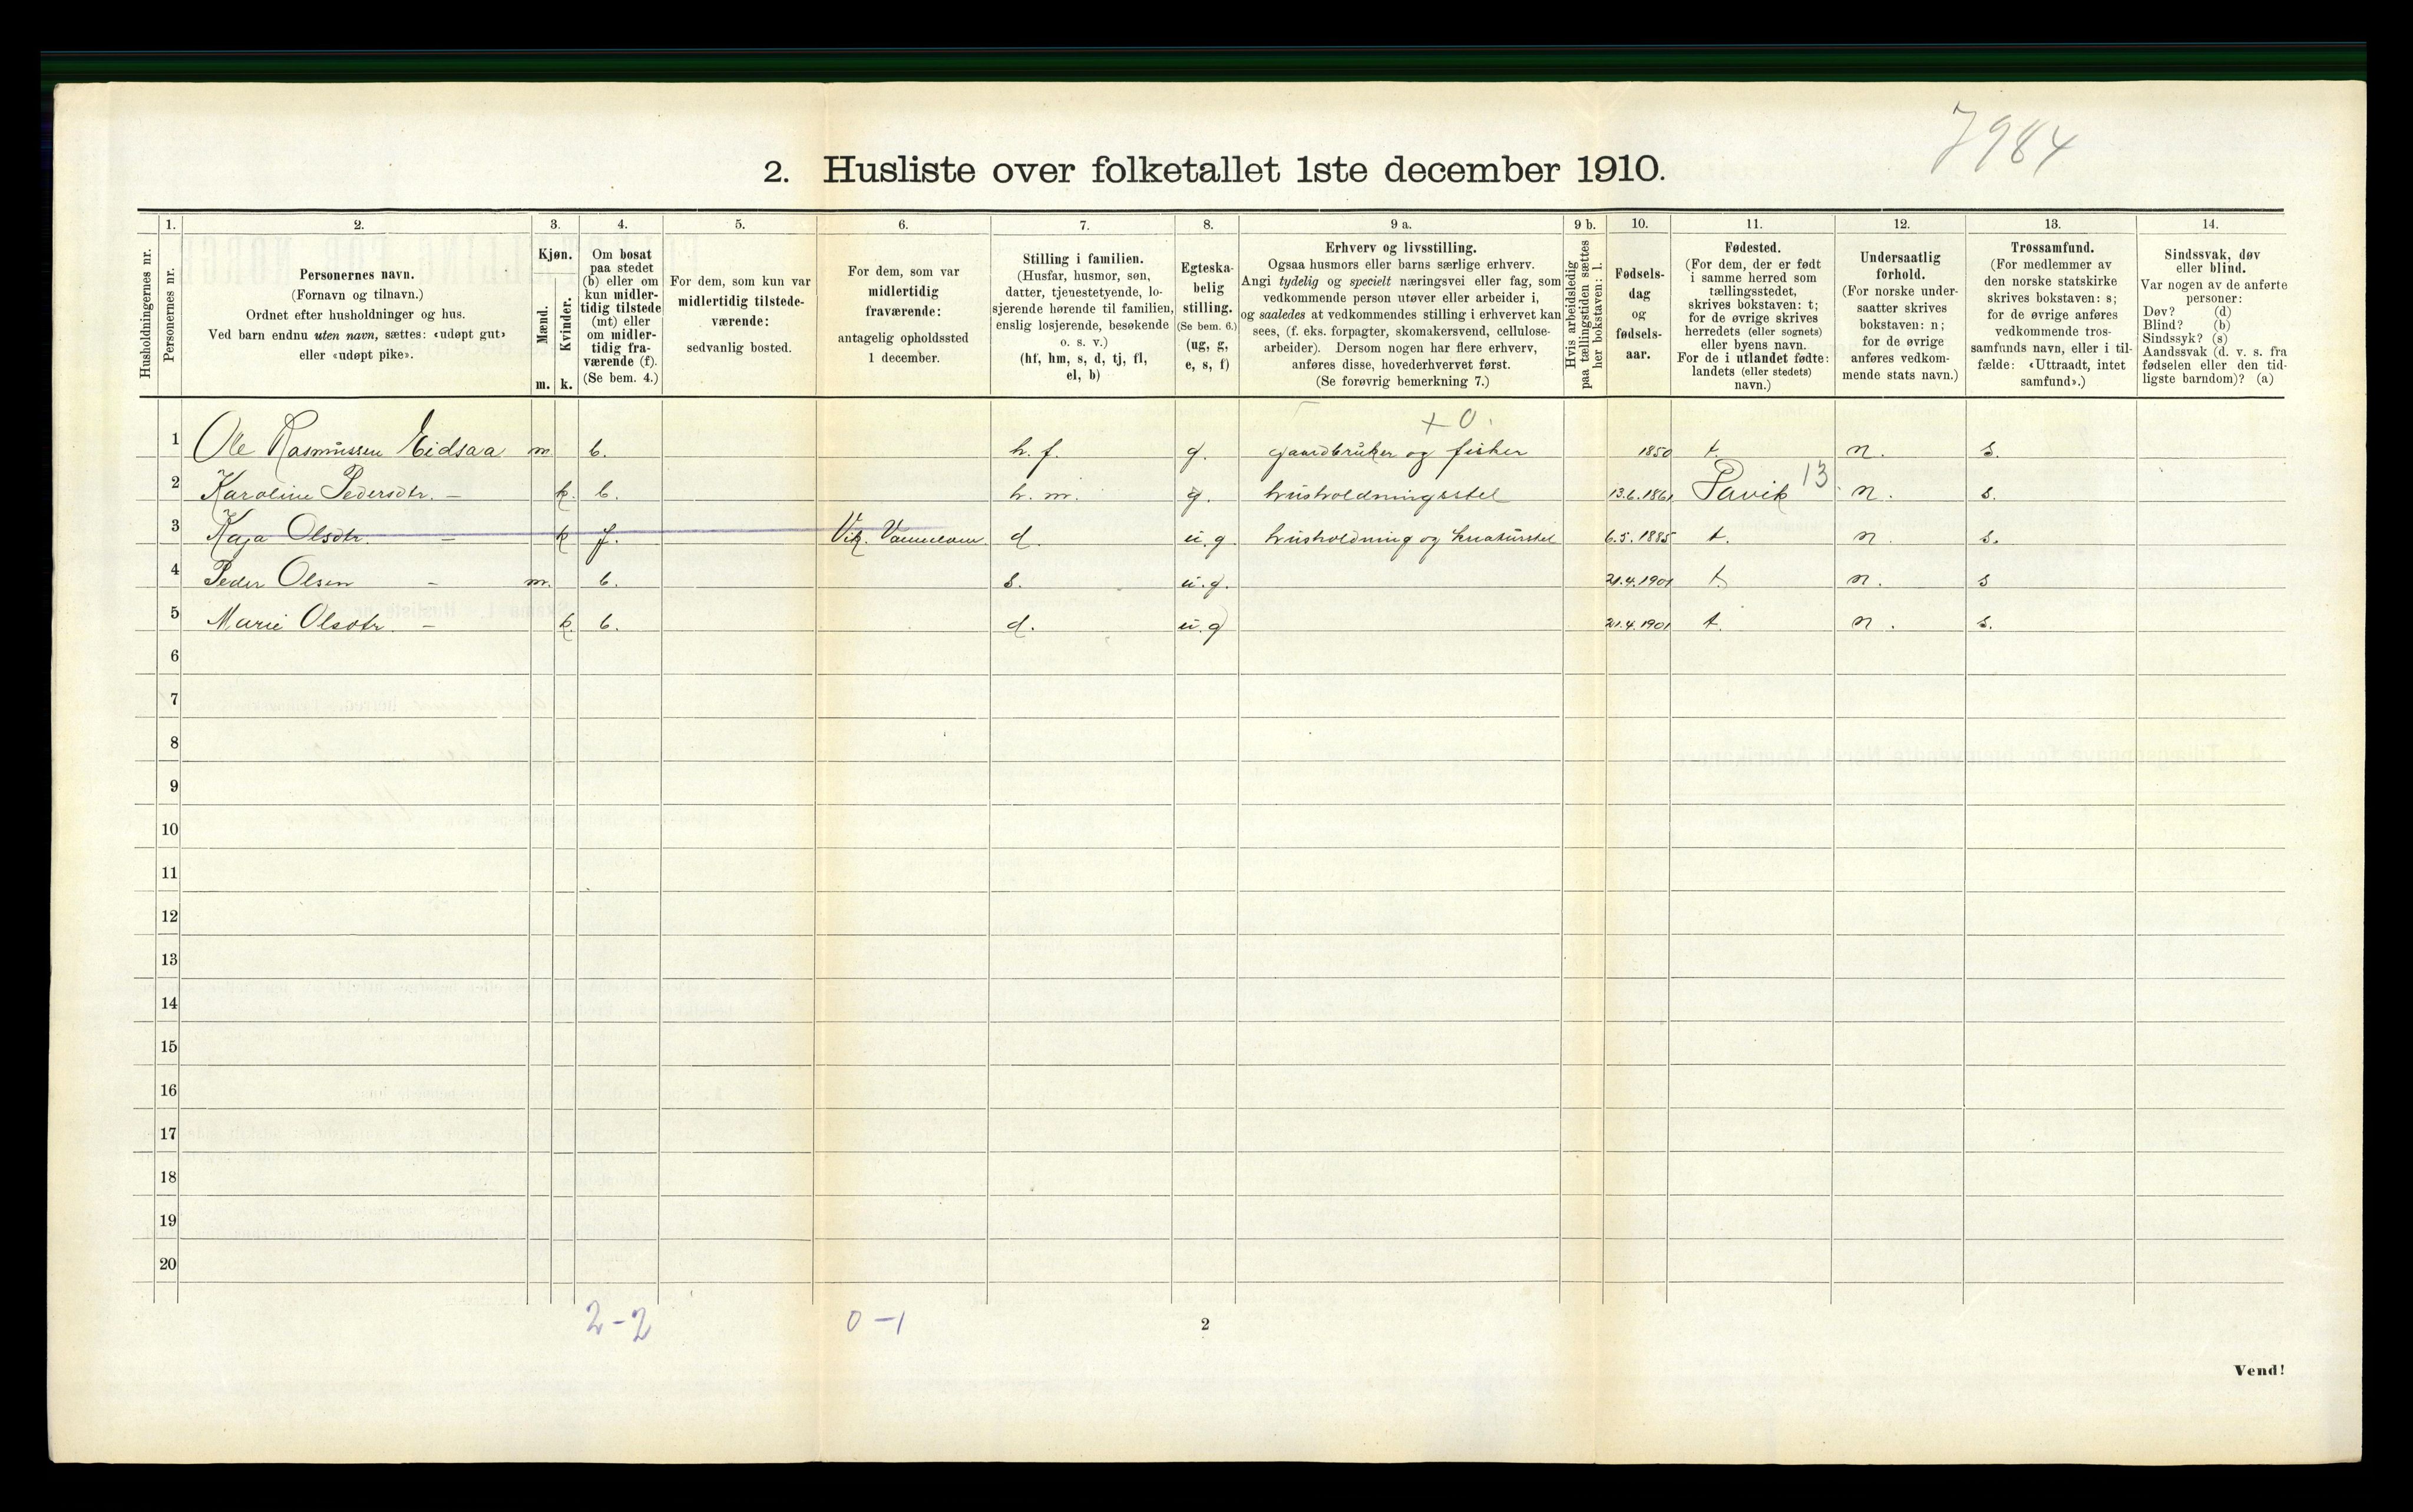 7984
2. Husliste over folketallet 1ste december 1910.
Husholdningernes nr.
1.
Personernes nr.
2.
Personernes navn.
(Fornavn og tilnavn.)
Ordnet efter husholdninger og hus.
Ved barn endnu uten navn, sættes: «udøpt gut»
eller «udøpt pike».
3.
Kjøn.
Mænd.
Kvinder.
m. k.
4.
Om bosat
paa stedet
(b) eller om
kun midler-
tidig tilstede
(mt) eller
om midler-
tidig fra-
værende (f).
(Se bem. 4.)
5.
For dem, som kun var
midlertidig tilstede-
værende:
sedvanlig bosted.
6.
For dem, som var
midlertidig
fraværende:
antagelig opholdssted
1 december.
7.
Stilling i familien.
(Husfar, husmor, søn,
datter, tjenestetyende, lo-
sjerende hørende til familien,
enslig losjerende, besøkende
o. s. v.)
(hf, hm, s, d, tj, fl,
el, b)
8.
Egteska-
belig
stilling.
(Se bem. 6.)
(ug, g,
e, s, f)
9 a.
Erhverv og livsstilling.
Ogsaa husmors eller barns særlige erhverv.
Angi tydelig og specielt næringsvei eller fag, som
vedkommende person utøver eller arbeider i,
og saaledes at vedkommendes stilling i erhvervet kan
sees, (f. eks. forpagter, skomakersvend, cellulose-
arbeider). Dersom nogen har flere erhverv,
anføres disse, hovederhvervet først.
(Se forøvrig bemerkning 7.)
9 b.
Hvis arbeidsledig
paa tællingstiden sættes
her bokstaven: l.
10.
Fødsels-
dag
og
fødsels-
aar.
11.
Fødested.
(For dem, der er født
i samme herred som
tællingsstedet,
skrives bokstaven: t;
for de øvrige skrives
herredets (eller sognets)
eller byens navn.
For de i utlandet fødte:
landets (eller stedets)
navn.)
12.
Undersaatlig
forhold.
(For norske under-
saatter skrives
bokstaven: n;
for de øvrige
anføres vedkom-
mende stats navn.)
13.
Trossamfund.
(For medlemmer av
den norske statskirke
skrives bokstaven: s;
for de øvrige anføres
vedkommende tros-
samfunds navn, eller i til-
fælde: «Uttraadt, intet
samfund».)
14.
Sindssvak, døv
eller blind.
Var nogen av de anførte
personer:
Døv? (d)
Blind? (b)
Sindssyk? (s)
Aandssvak (d. v. s. fra
fødselen eller den tid-
ligste barndom)? (a)
+ 0.
1 Ole Rasmussen Eidsaa m b. h. f. g. gaardbruker og fisker 1850 t. n. s.
2 Karoline Pedersdtr. – k. b. h. m. g. husholdningsstel 13.6.1861 Pavik 13 n. s.
3 Kaja Olsdtr. – k f. Vik. d. u. g husholdning og kreaturstel 6.5.1885 t. n. s.
4 Peder Olsen – m. b. s. u. g. 21.4.1901 t. n. s
5 Marie Olsdtr. – k. b. d. u. g 21.4.1901 t. n. s.
6
7
8
9
10
11
12
13
14
15
16
17
18
19
20
2-2 0-1 2
Vend!